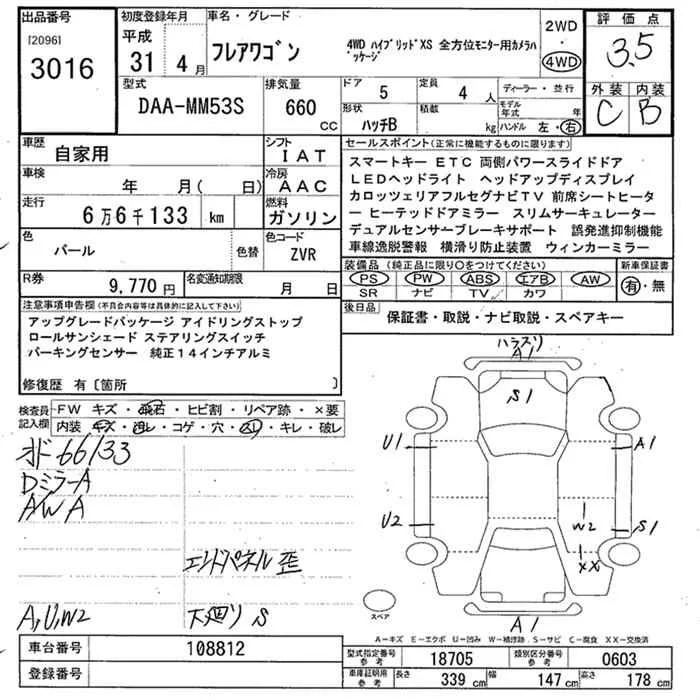 出品番号
[2096]
3016
初度登録年月
平成
31 4月
車名・グレード
フレアワゴン
4WD ハイブリッドXS 全方位モニター用カメラパッケージ
2WD
・
4WD
評価点
3.5
外装 内装
C B
型式
DAA-MM53S
排気量
660 CC
ドア
5
定員
4人
形状
ハッチB
積載
kg
ディーラー・並行
モデル年式 年
ハンドル 左・右
車歴
自家用
シフト
IAT
車検
年 月( 日)
冷房
AAC
走行
6万6千133 km
燃料
ガソリン
色
パール
色替
色コード
ZVR
R券
9,770円
名変通知期限
月 日
セールスポイント(正常に機能するものに限ります)
スマートキー ETC 両側パワースライドドア
LEDヘッドライト ヘッドアップディスプレイ
カロッツェリアフルセグナビTV 前席シートヒータ
ー ヒーテッドドアミラー スリムサーキュレーター
デュアルセンサーブレーキサポート 誤発進抑制機能
車線逸脱警報 横滑り防止装置 ウィンカーミラー
装備品(純正品に限り○をつけてください)
PS PW ABS エアB AW
SR ナビ TV カワ
新車保証書
有・無
後日品
保証書・取説・ナビ取説・スペアキー
注意事項申告欄(不具合内容等は具体的に記入して下さい)
アップグレードパッケージ アイドリングストップ
ロールサンシェード ステアリングスイッチ
パーキングセンサー 純正14インチアルミ
修復歴 有〔箇所
検査員記入欄
FW キズ・飛石・ヒビ割・リペア跡・×要
内装 キズ・汚レ・コゲ・穴・スレ・キレ・破レ
オド66133
Dミラ-A
AWA
エンドパネル歪
A,U,W2 下廻りS
A1
S1
U1
A1
U2
W2
S1
XX
A1
スペア
A－キズ E－エクボ U－凹み W－補修跡 S－サビ C－腐食 XX－交換済
車台番号
108812
登録番号
型式指定番号
参考
18705
類別区分番号
参考
0603
車庫証明用
参考
長さ 339 cm 幅 147 cm 高さ 178 cm